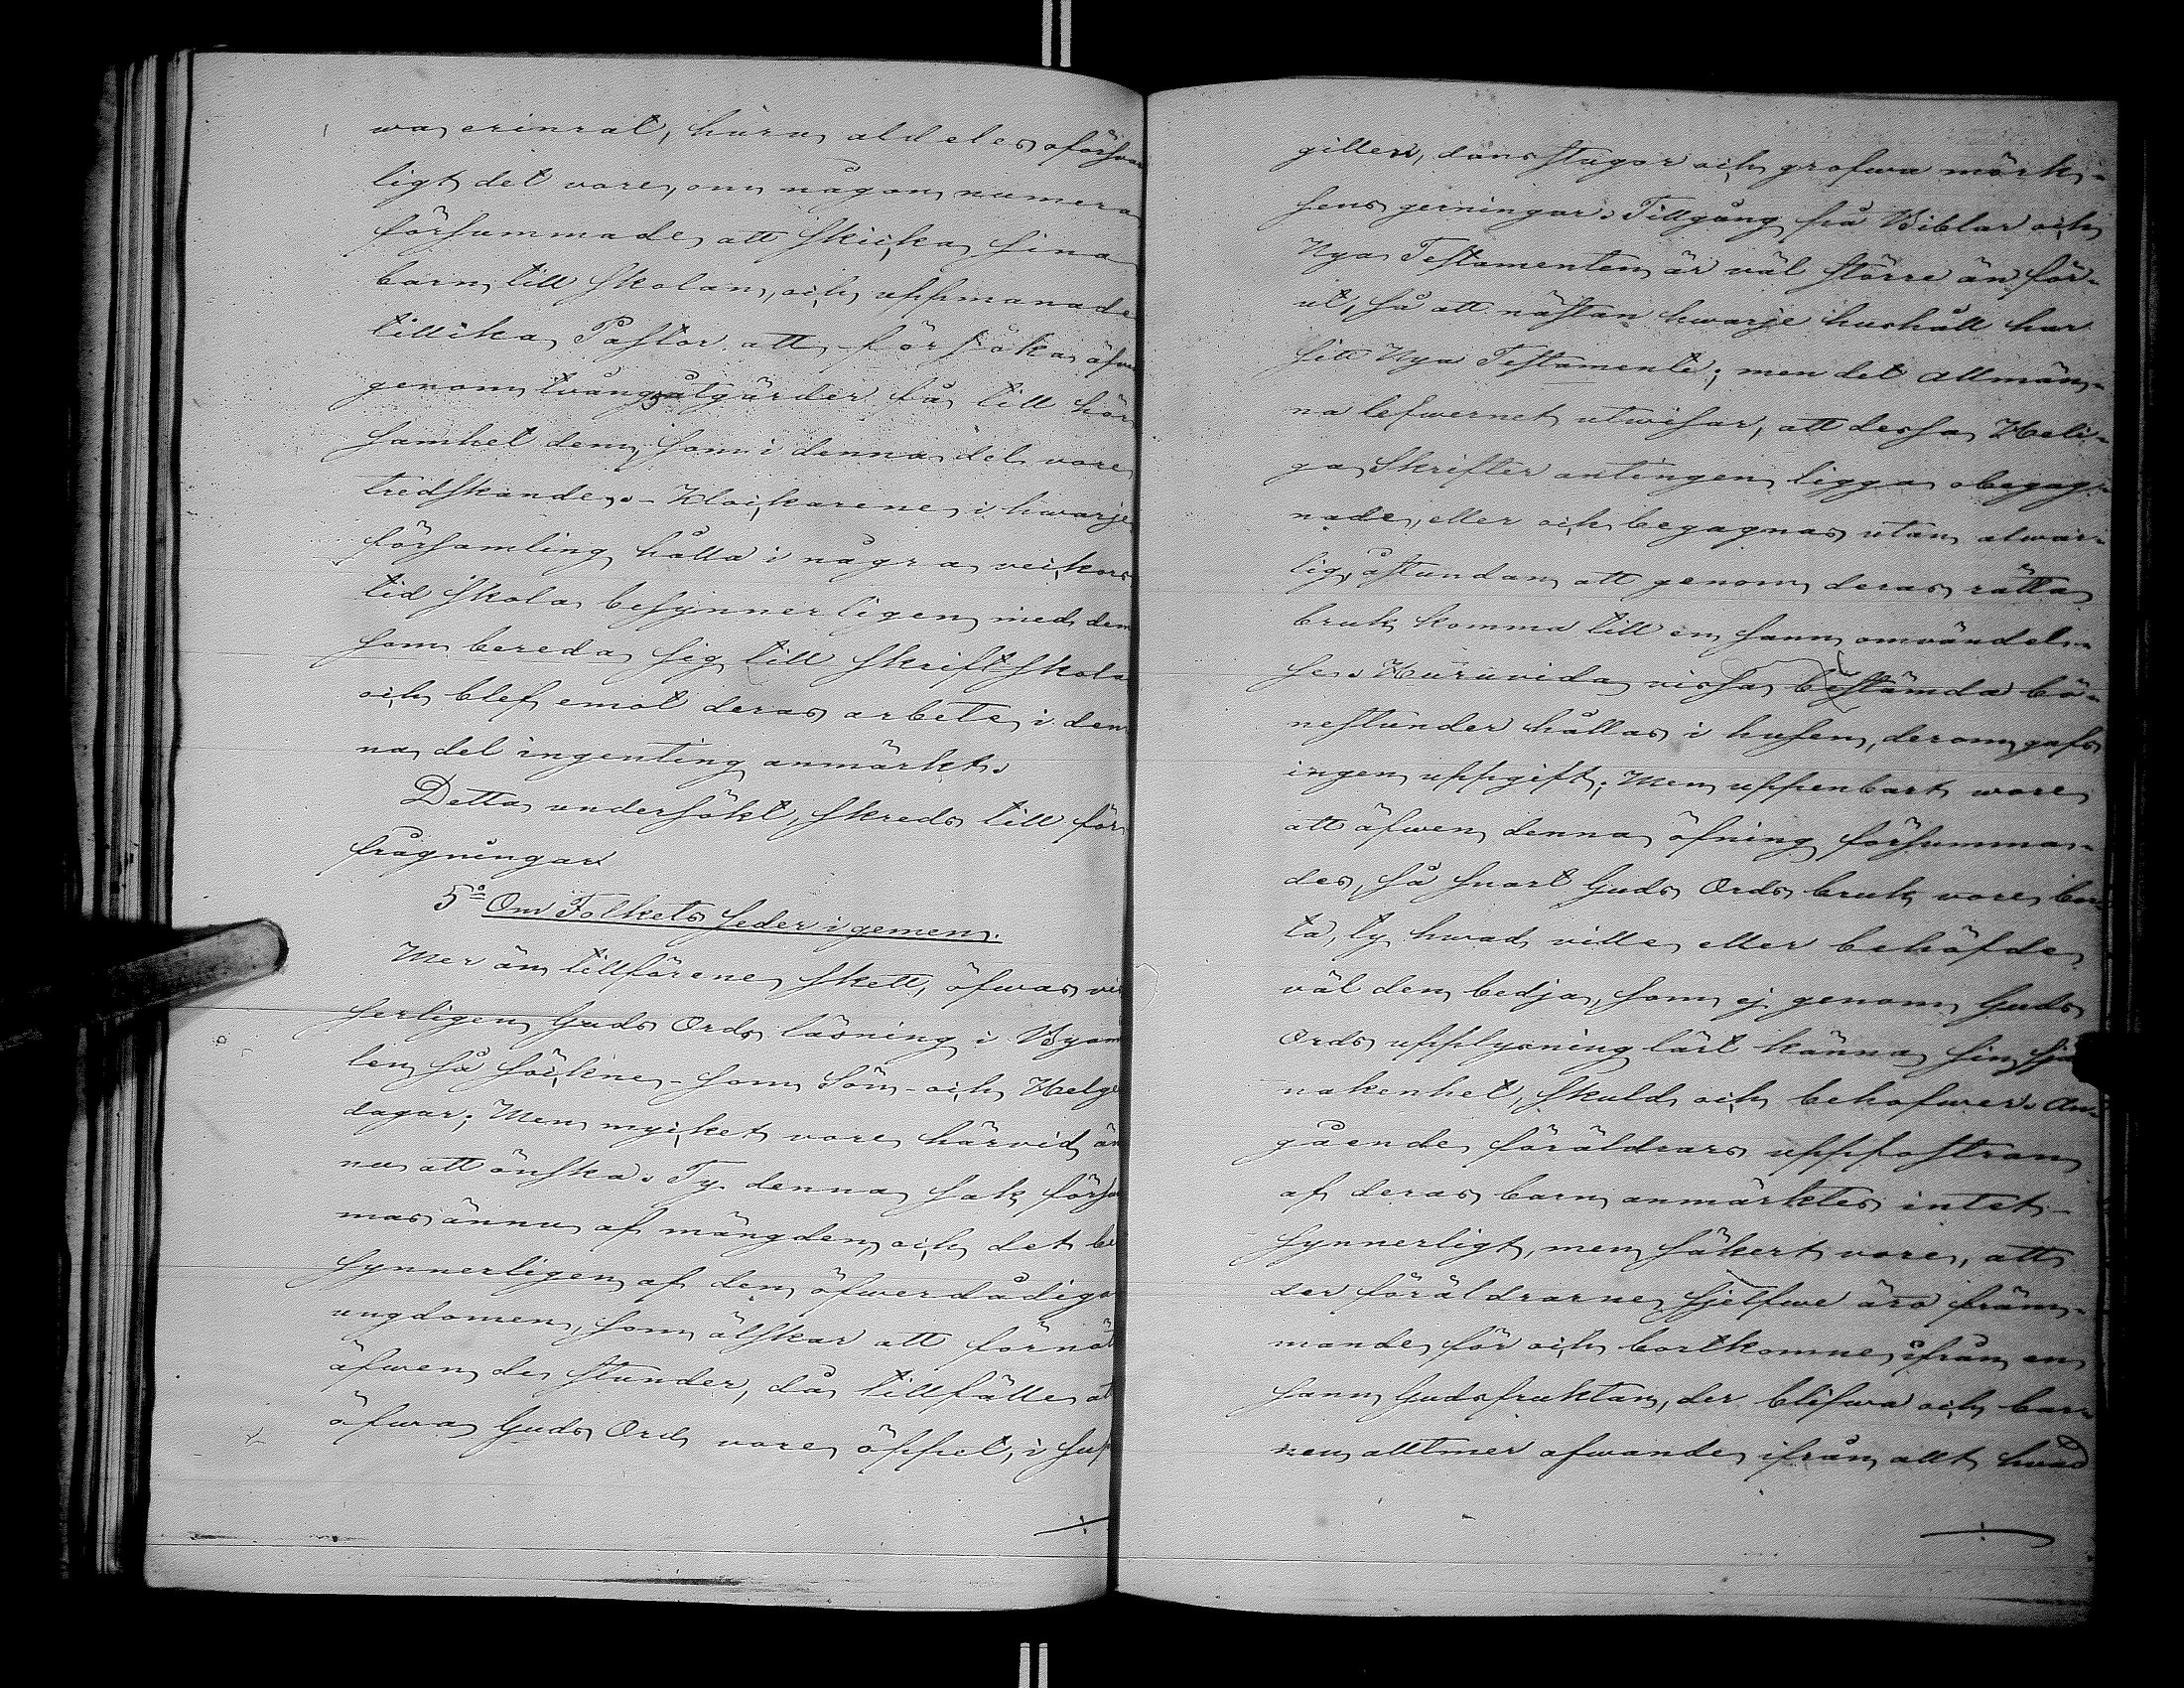 wa erinrat, huru aldeles oförsvar
ligt det vore, om någon numera
försummade att skicka sina
barn till skolan, och uppmanade
tillika Pastor att försöka äfven
genom tvångsåtgärder få till hör
samhet dem, som i denna del vore
tredskande. - Klockarene i hwarje
församling hålla i några veckors
tid skola besynnerligen med dem
som bereda sig till skriftskola
och blef emot deras arbete i den
na del ingenting anmärkt.
Detta undersökt, skreds till för
frågningar
5º Om Folkets seder i gemen.
Mer än tillförene skett, öfwas vis
serligen Guds Ords läsning i Byarne
len på söckne- som Sön- och Helge
dagar; Men mycket vore härvid än
nu att önska. Ty denna sak försum
mas ännu af mängden, och det be
synnerligen af den öfwerdådiga
ungdomen, som älskar att förnöta
äfwen de stunder, då tillfälle att
öfwa Guds Ord vore öppet, i sup
gillen, dansstugor och grofwa mörk-
sens gerningar. Tillgång på Biblar och
Nya Testamenten är väl större än för-
ut, så att nästan hwarje hushåll har
sitt Nya Testamente; men det allmän-
na lefwernet utwisar, att dessa Heli-
ga Skrifter antingen ligga obegag-
nade, eller och begagnas utan alwar-
lig åstundan att genom deras rätta
bruk komma till en sann omvändel-
se. Huruvida vissa bestämda bö-
nestunder hållas i husen, derom gafs
ingen uppgift; Men uppenbart wore
att äfwen denna öfning försumma-
des, så snart Guds Ords bruk vore bor-
ta, ty hwad ville eller behöfde
väl den bedja, som ej genom Guds
Ords upplysning lärt känna sin
nakenhet, skuld och behofwer. An-
gående föräldrars uppfostran
af deras barn anmärktes intet
synnerligt, men säkert vore, att
der föräldrarne sjelfwe äro främ-
mande för och bortkomne ifrån en
sann Gudsfruktan, der blifwa och bar-
nen alltmer afwande ifrån allt hwad